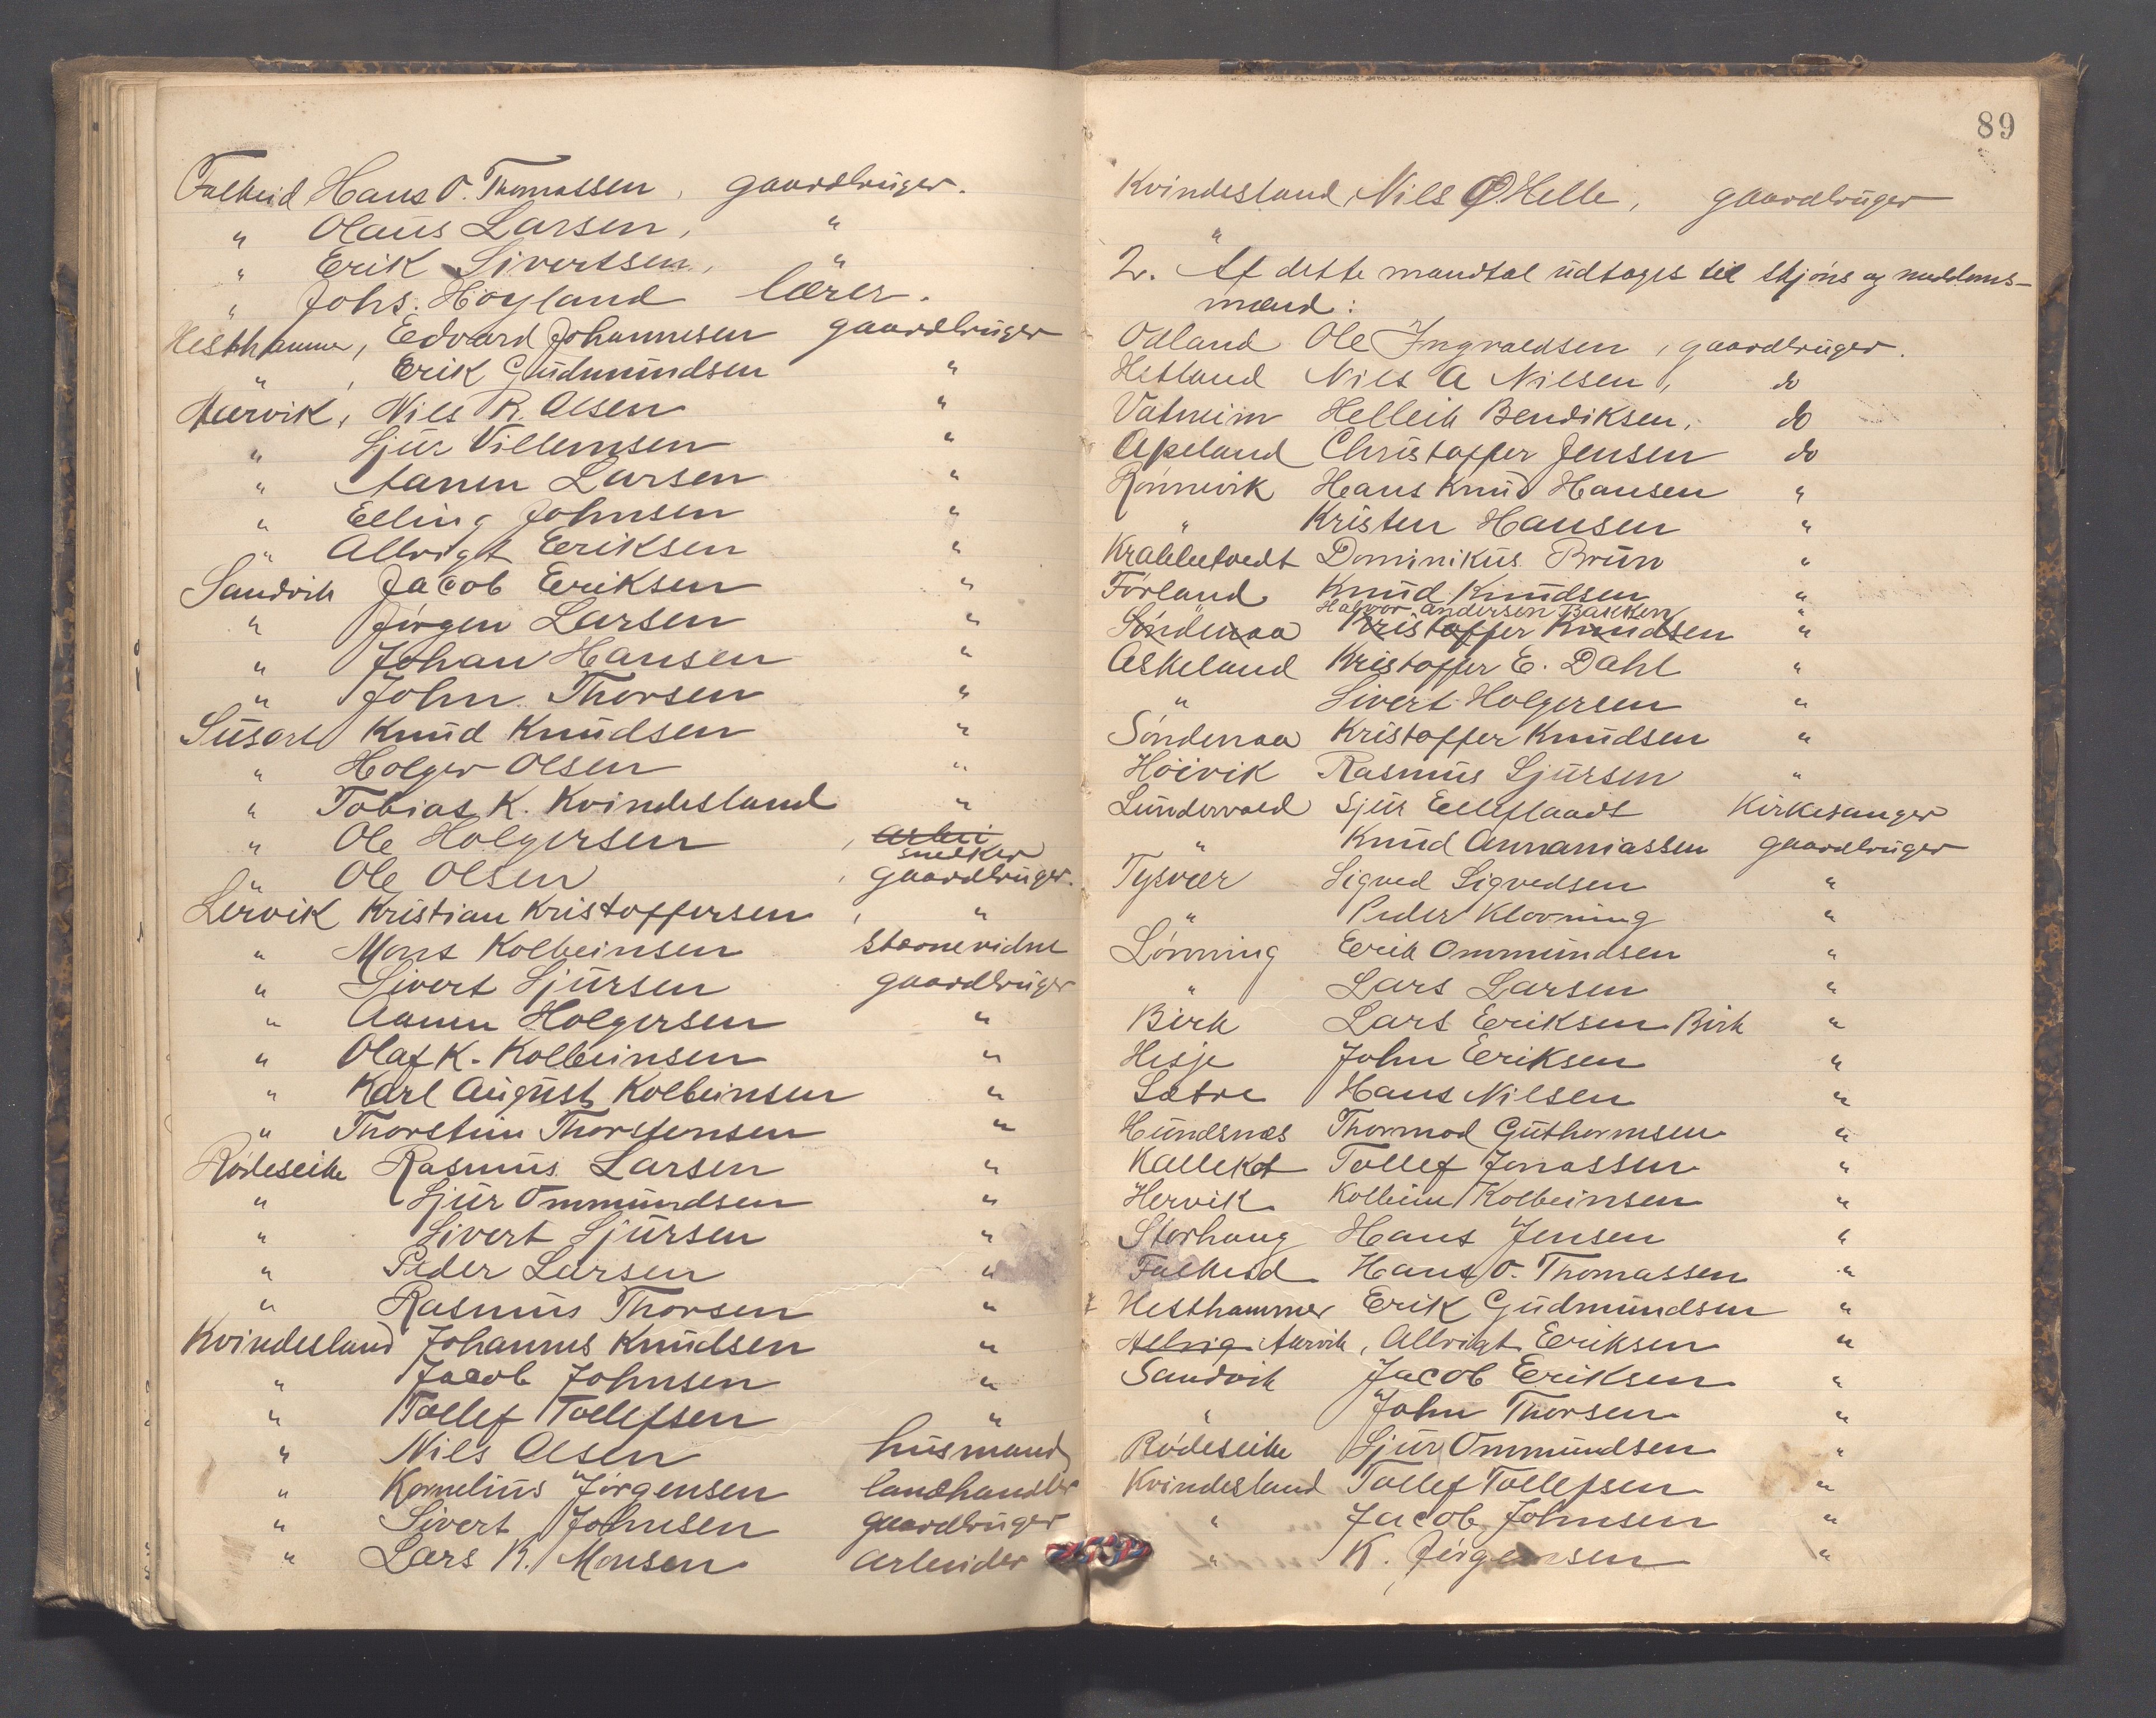 Falkeid Hans O. Thomassen, gaardbruger.
" Olaus Larsen, "
" Erik Sivertsen, "
" Johs. Høyland lærer.
Hesthammer, Edvard Johannesen gaardbruger
" , Erik Gudmundsen "
Aarvik, Nils R. Olsen "
" Sjur Villemsen "
" Aanen Larsen "
" Elling Johnsen "
" Allrigt Eriksen "
Sandvik Jacob Eriksen "
" Jörgen Larsen "
" Johan Hansen "
" John Thorsen "
Susort Knud Knudsen "
" Holger Olsen "
" Tobias K. Kvindesland "
" Ole Holgersen , arbei
snekker
" Ole Olsen , gaardbruger.
Lervik Kristian Kristoffersen , "
" Mons Kolbeinsen stævnevidne
" Sivert Sjursen gaardbruger
" Aanen Holgersen "
" Olaf K. Kolbeinsen "
" Karl August Kolbeinsen "
" Thorstein Thorstensen "
Rödeseike Rasmus Larsen "
" Sjur Ommundsen "
" Sivert Sjursen "
" Peder Larsen "
" Rasmus Thorsen "
Kvindesland Johannes Knudsen "
" Jacob Johnsen "
" Tollef Tollefsen "
" Nils Olsen husmand
" Kornelius Jörgensen landhandler
" Sivert Johnsen gaardbruger
" Lars K. Monsen arbeider
89
Kvindesland, Nils O Helle, gaardbruger
"
2. Af dette mandtal udtages til skjöns og meddoms-
mænd:
Odland Ole Ingvaldsen, gaardbruger.
Hetland Niels A Nilsen, do
Vatneim Helleik Bendiksen, do
Apeland Christoffer Jensen do
Rönnevik Hans Knud Hansen "
" Kristen Hansen "
Krabbetvedt Dominikus Brun "
Förland Knud Knudsen "
Halvor Andersen Bakken "
Söndenaa Kristoffer Knudsen "
Askeland Kristoffer E. Dahl "
" Sivert Holgersen "
Söndenaa Kristoffer Knudsen "
Höivik Rasmus Sjursen "
Lundervold Sjur Eelleflaadt Kirkesanger
" Knud Annaniassen gaardbruger
Tysvær Sigved Sigvedsen "
" Peder Klovning "
Lönning Erik Ommundsen "
" Lars Larsen "
Birk Lars Eriksen Birk "
Hesje John Eriksen "
Sætre Hans Nilsen "
Hundsnes Thormod Guthormsen "
Kallekot Tollef Jonassen "
Hervik Kolbein Kolbeinsen "
Storhaug Hans Jensen "
Falkeid Hans O. Thomassen "
Hesthammer Erik Gudmundsen "
Aarvik, Allrigt Eriksen "
Sandvik Jacob Eriksen "
" John Thorsen "
Rödeseike Sjur Ommundsen "
Kvindesland Tollef Tollefsen "
" Jacob Johnsen "
" K. Jörgensen "